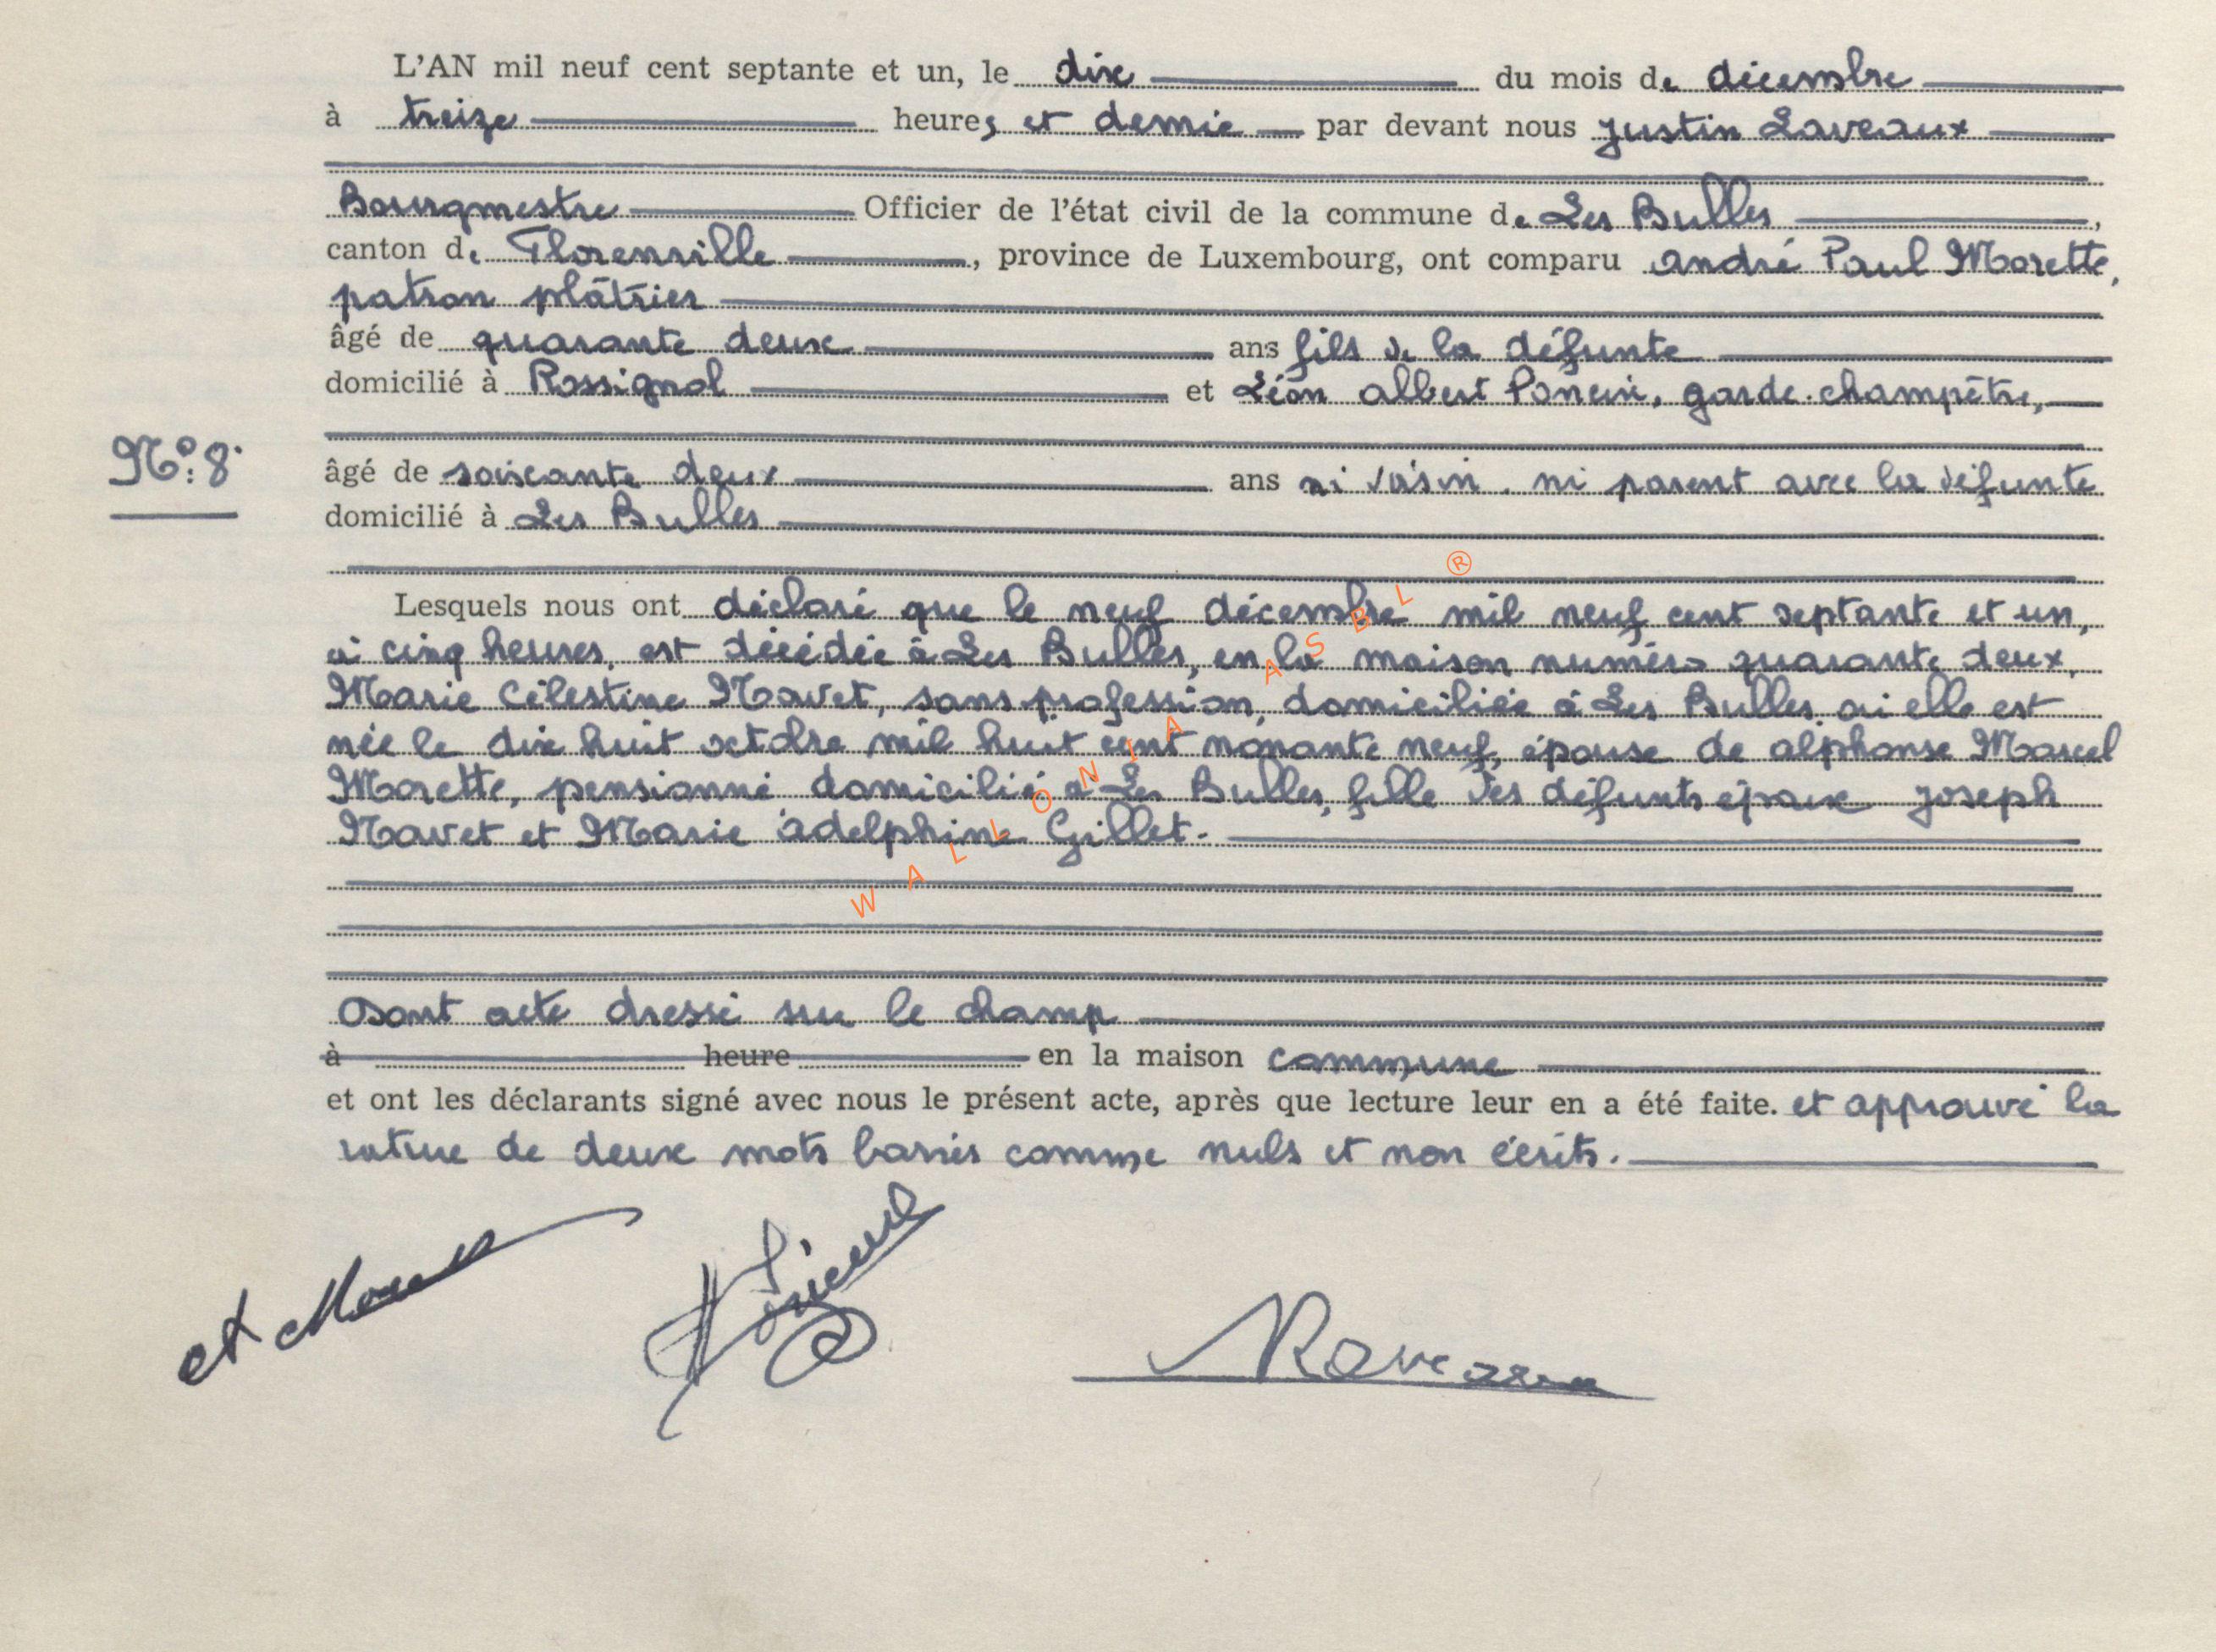 L'AN mil neuf cent septante et un, le dix du mois de décembre
à treize heures et demie par devant nous Justin Laveaux
Bourgmestre Officier de l'état civil de la commune de Les Bulles,
canton de Florenville, province de Luxembourg, ont comparu André Paul Morette,
patron plâtrier
âgé de quarante deux ans fils de la défunte
domicilié à Rossignol et Léon Albert Poncin, garde-champêtre,
N°: 8.
âgé de soixante deux ans ni voisin, ni parent avec la défunte
domicilié à Les Bulles
Lesquels nous ont déclaré que le neuf décembre mil neuf cent septante et un,
à cinq heures, est décédée à Les Bulles, en la maison numéro quarante deux,
Marie Célestine Navet, sans profession, domiciliée à Les Bulles où elle est
née le dix huit octobre mil huit cent nonante neuf, épouse de Alphonse Marcel
Morette, pensionné domicilié à Les Bulles, fille des défunts époux Joseph
Navet et Marie Adelphine Gillet.
WALLONIA ASBL ®
Dont acte dressé sur le champ
à heure en la maison commune
et ont les déclarants signé avec nous le présent acte, après que lecture leur en a été faite. et approuvé la
rature de deux mots barrés comme nuls et non écrits.